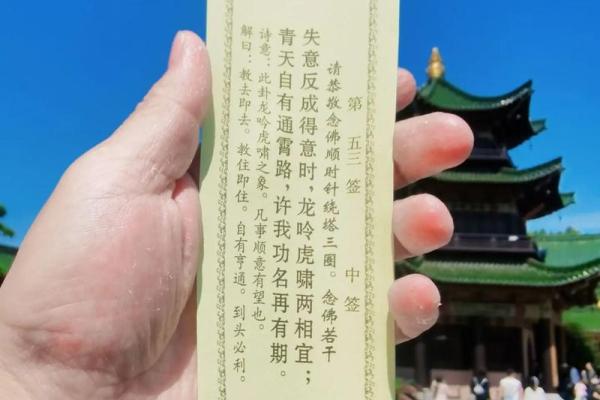 第 五三 签 中 签
请恭敬念佛顺时针绕塔三圈。念佛若干
失意反成得意时，龙呤虎啸两相宜；
青天自有通霄路，许我功名再有期。
诗意：此卦龙呤虎啸之象。凡事顺意有望也。
解曰：教去即去。教住即住。自有亨通。到头必利。